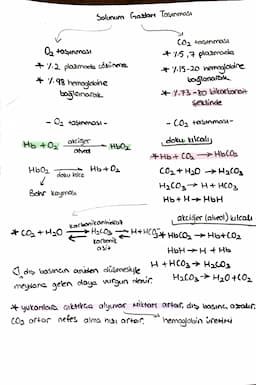 Solunum Gazları Taşınması
O₂ taşınması
* %2 plazmada çözünme
* %98 hemoglobine
bağlanarak
CO₂ taşınması
* %5,7 plazmada
* %15-20 hemoglobine
bağlanarak
* %73-80 bikarbonat
şeklinde
- O₂ taşınması -
Hb + O₂ akciğer alveol → HbO₂
HbO₂ doku kılca → Hb + O₂
↓
Bohr kayması
- CO₂ taşınması -
doku kılcalı
* Hb + CO₂ → HbCO₂
CO₂ + H₂O → H₂CO₃
H₂CO₃ → H + HCO₃
Hb + H → HbH
* CO₂ + H₂O karbonikanhidraz ⇌ karbonik asit H₂CO₃ ⇌ H + HCO₃
akciğer (alveol) kılcalı
* HbCO₂ → Hb + CO₂
HbH → H + Hb
H + HCO₃ → H₂CO₃
H₂CO₃ → H₂O + CO₂
dış basıncın aniden düşmesiyle
meydana gelen olaya vurgun denir.
* yukarılara çıktıkça alyuvar miktarı artar, dış basınç azalır.
CO₂ artar nefes alma hızı artar. hemoglobin üretimi